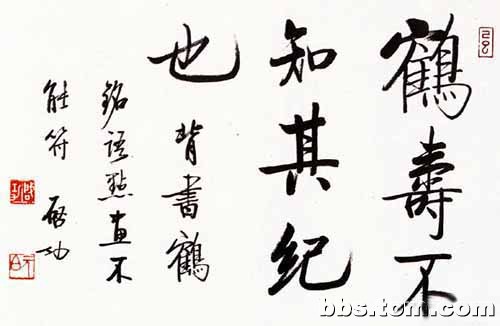 鶴壽不
知其紀
也背書鶴
銘語點畫不
能符 啓功
bbs.tom.com